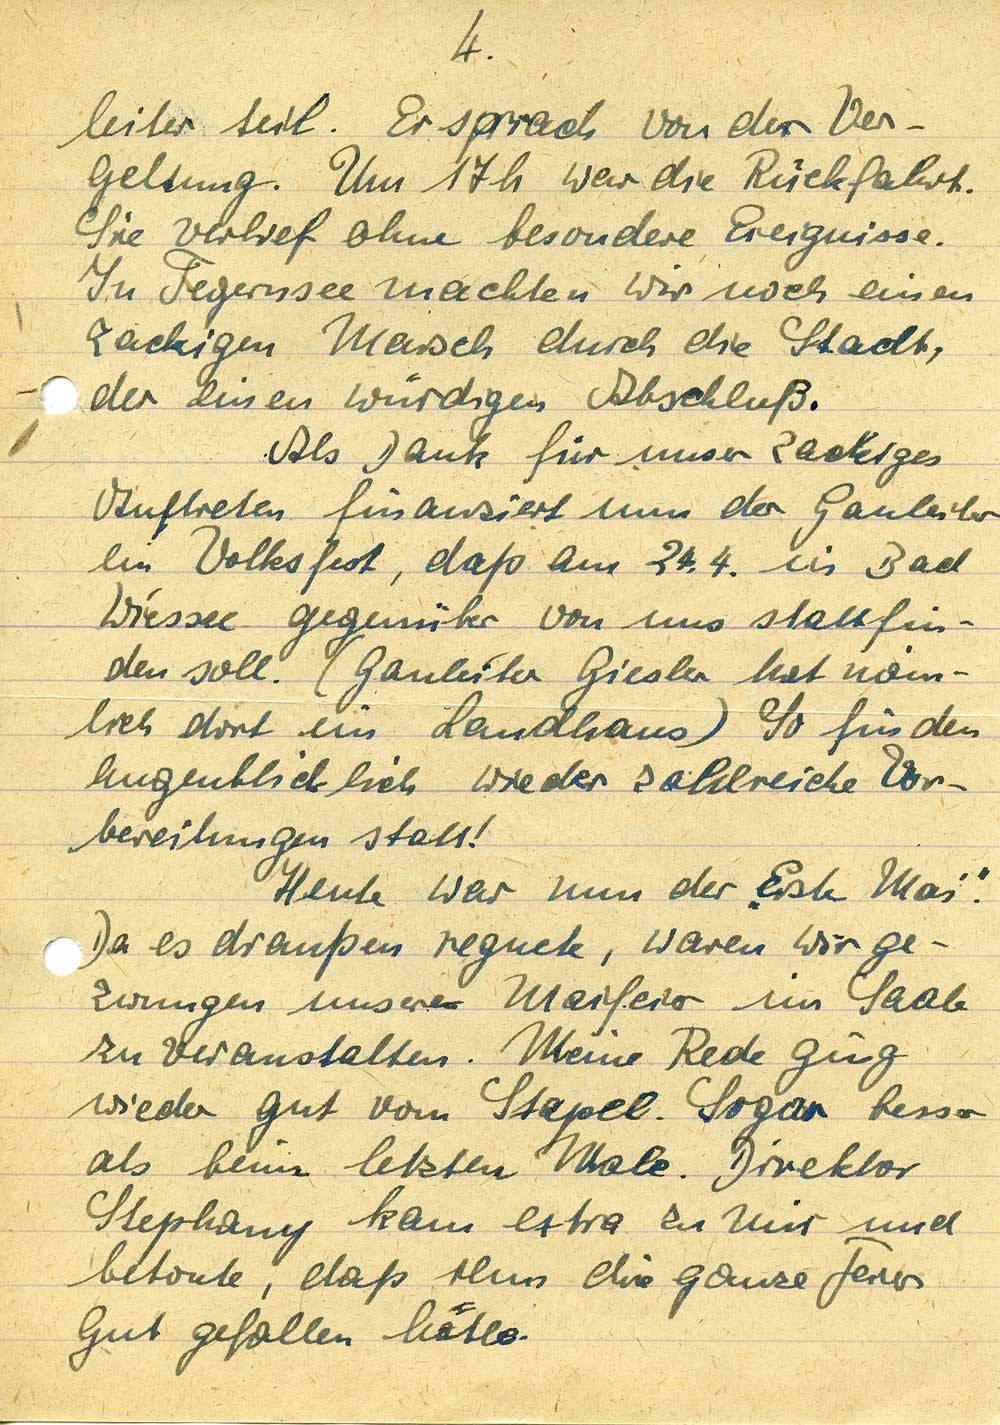 4.
leiter teil. Er sprach von der Ver-
geltung. Um 17h war die Rückfahrt.
Sie verlief ohne besondere Ereignisse.
In Tegernsee machten wir noch einen
zackigen Marsch durch die Stadt,
der einen würdigen Abschluß.
Als Dank für unser zackiges
Auftreten finanziert nun der Gauleiter
ein Volksfest, daß am 24.4. in Bad
Wiessee gegenüber von uns stattfin-
den soll. (Gauleiter Giesler hat näm-
lich dort ein Landhaus) So finden
augenblicklich wieder zahlreiche Vor-
bereitungen statt!
Heute war nun der „Erste Mai".
Da es draußen regnete, waren wir ge-
zwungen unsere Maifeier im Saale
zu veranstalten. Meine Rede ging
wieder gut vom Stapel. Sogar besser
als beim letzten Male. Direktor
Stephany kam extra zu mir und
betonte, daß ihm die ganze Feier
gut gefallen hätte.